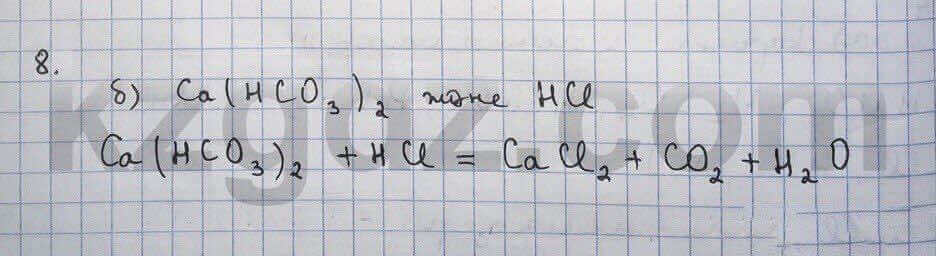 8.
б) Ca(HCO₃)₂ және HCl
Ca(HCO₃)₂ + HCl = CaCl₂ + CO₂ + H₂O
kzgdz.com